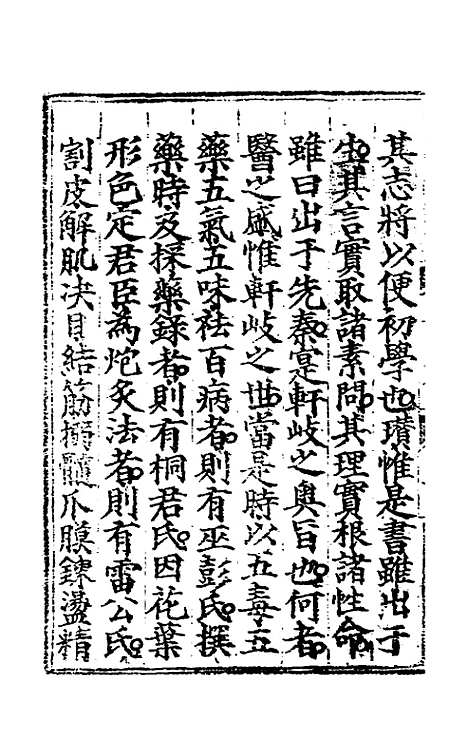 其志將以便初學也瓚惟是書雖出于
生其言實取諸素問其理實根諸性命
雖曰出于先秦寔軒岐之奥旨也何者
醫之盛惟軒岐之世當是時以五毒五
藥五氣五味祛百病者則有巫彭氏撰
藥時及採藥錄者則有桐君氏因花葉
形色定君臣為炮炙法者則有雷公氏
割皮解肌决目結筋搦髓爪膜鍊盪精